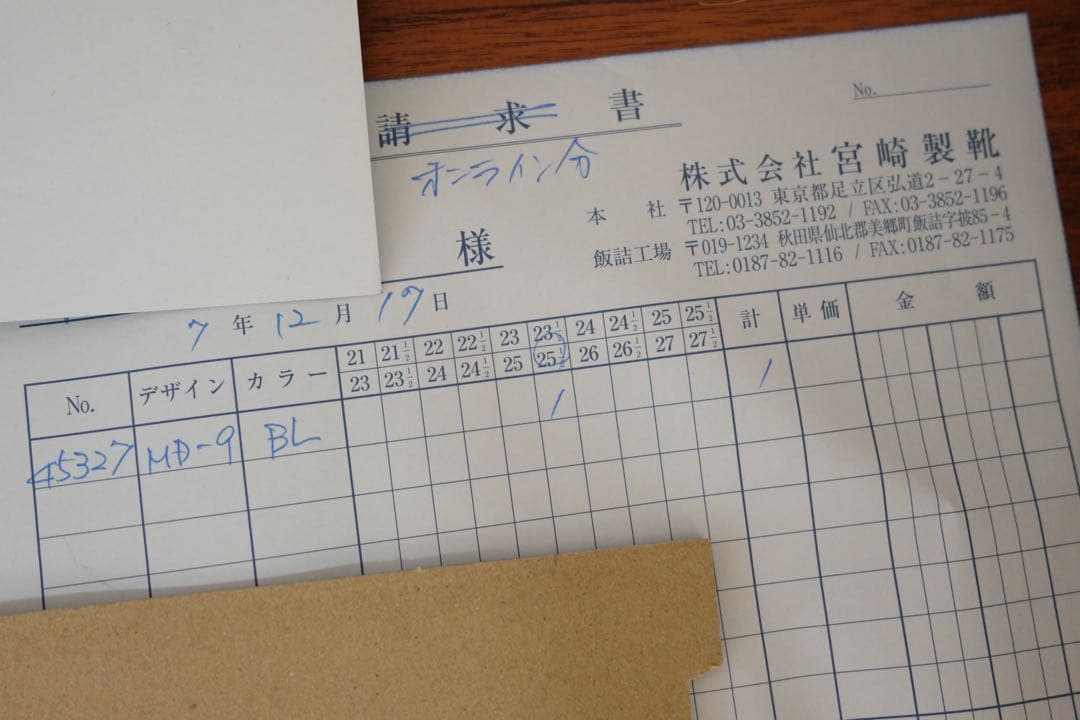 No.
請求書
オンライン分
株式会社宮崎製靴
本社 〒120-0013 東京都足立区弘道2-27-4
TEL:03-3852-1192 / FAX:03-3852-1196
飯詰工場 〒019-1234 秋田県仙北郡美郷町飯詰字披85-4
TEL:0187-82-1116 / FAX:0187-82-1175
様
7年12月19日
No. デザイン カラー 21 21½ 22 22½ 23 23½ 24 24½ 25 25½ 計 単価 金額
23 23½ 24 24½ 25 25½ 26 26½ 27 27½
45327 MD-9 BL 1 1